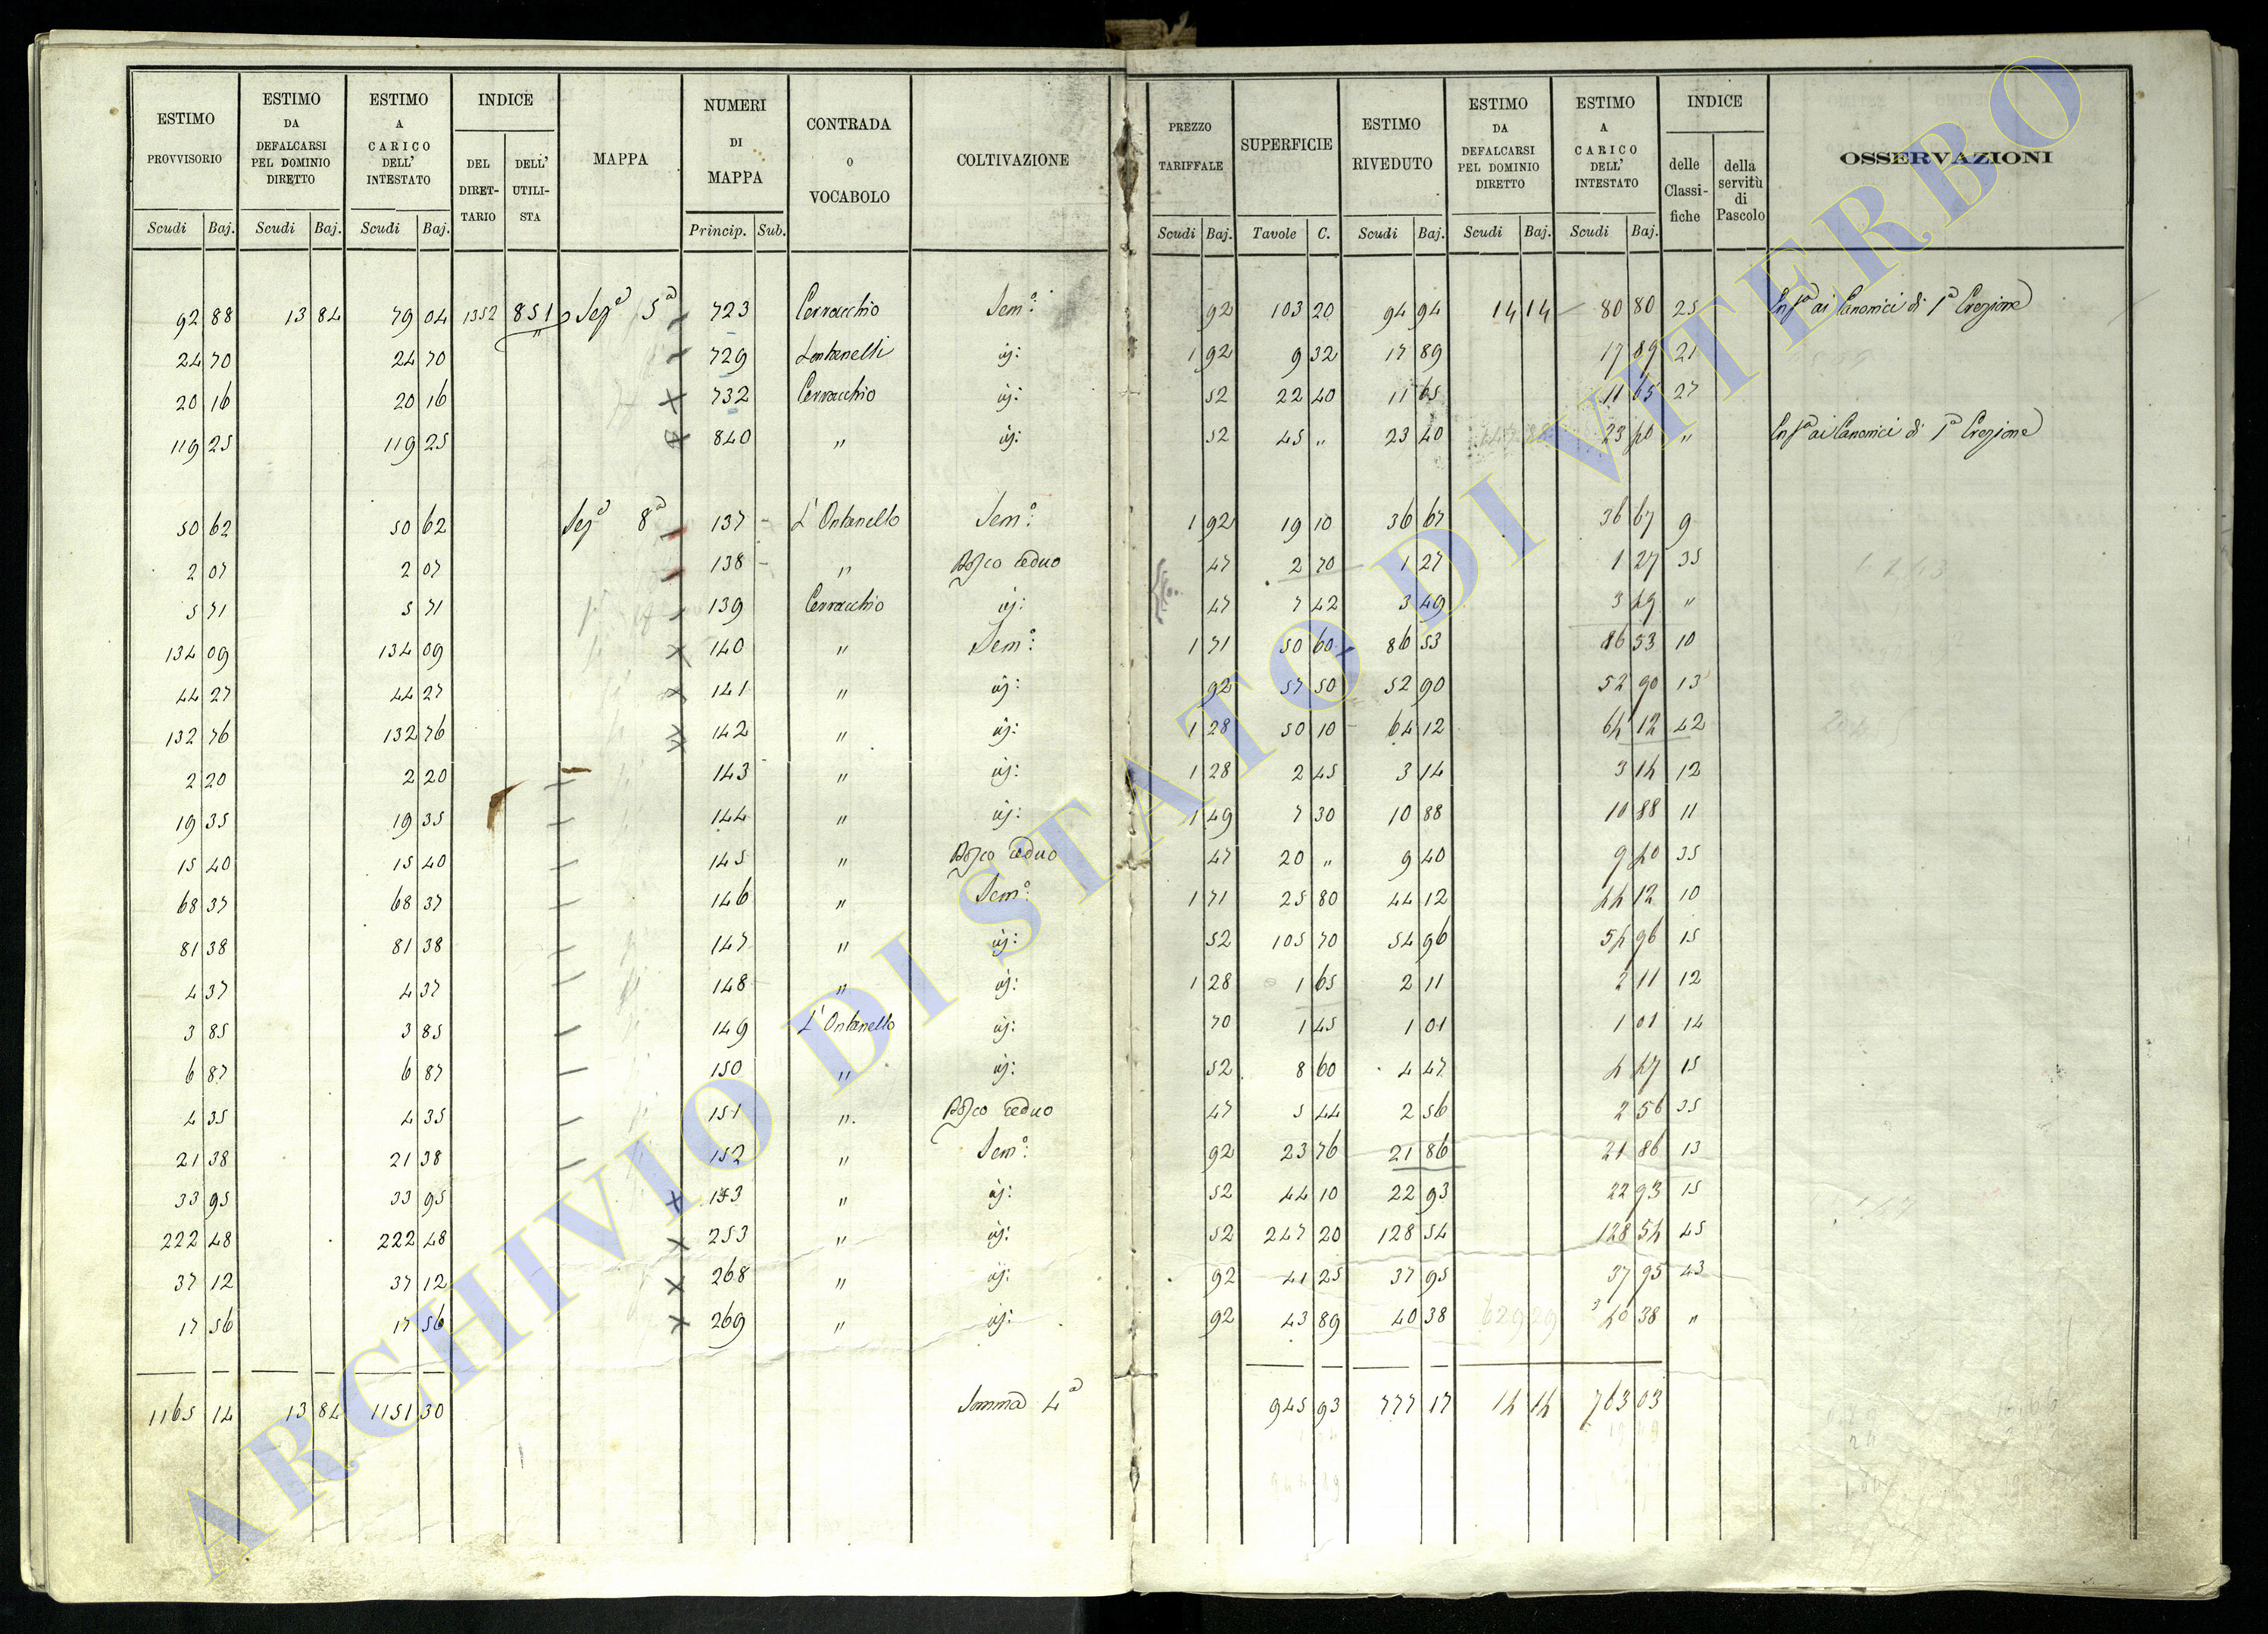 ESTIMO PROVVISORIO | ESTIMO DA DEFALCARSI PEL DOMINIO DIRETTO | ESTIMO A CARICO DELL' INTESTATO | INDICE | MAPPA | NUMERI DI MAPPA | CONTRADA O VOCABOLO | COLTIVAZIONE | PREZZO TARIFFALE | SUPERFICIE | ESTIMO RIVEDUTO | ESTIMO DA DEFALCARSI PEL DOMINIO DIRETTO | ESTIMO A CARICO DELL' INTESTATO | INDICE | OSSERVAZIONI
DEL DIRETTARIO | DELL' UTILISTA | delle Classifiche | della servitù di Pascolo
Scudi Baj. | Scudi Baj. | Scudi Baj. | Princip. Sub. | Scudi Baj. | Tavole C. | Scudi Baj. | Scudi Baj. | Scudi Baj.
92 88 13 84 79 04 1352 851 Sez.a 5a 723 Cerracchio Sem.o 92 103 20 94 94 14 14 80 80 25 Enf.a ai Canonici di 1a Erezione
24 70 24 70 729 Lontanelli id: 1 92 9 32 17 89 17 89 21
20 16 20 16 732 Cerracchio id: 52 22 40 11 65 11 65 27
119 25 119 25 840 " id: 52 45 " 23 40 23 40 " Enf.a ai Canonici di 1a Erezione
50 62 50 62 Sez.a 8a 137 L'Ontanello Sem.o 1 92 19 10 36 67 36 67 9
2 07 2 07 138 " Bosco ceduo 47 2 70 1 27 1 27 35
5 71 5 71 139 Cerracchio id: 47 7 42 3 49 3 49 "
134 09 134 09 140 " Sem.o 1 71 50 60 86 53 86 53 10
44 27 44 27 141 " id: 92 57 50 52 90 52 90 13
132 76 132 76 142 " id: 1 28 50 10 64 12 64 12 42
2 20 2 20 143 " id: 1 28 2 45 3 14 3 14 12
19 35 19 35 144 " id: 1 49 7 30 10 88 10 88 11
15 40 15 40 145 " Bosco ceduo 47 20 " 9 40 9 40 35
68 37 68 37 146 " Sem.o 1 71 25 80 44 12 44 12 10
81 38 81 38 147 " id: 52 105 70 54 96 54 96 15
4 37 4 37 148 " id: 1 28 1 65 2 11 2 11 12
3 85 3 85 149 L'Ontanello id: 70 1 45 1 01 1 01 14
6 87 6 87 150 " id: 52 8 60 4 47 4 47 15
4 35 4 35 151 " Bosco ceduo 47 5 44 2 56 2 56 35
21 38 21 38 152 " Sem.o 92 23 76 21 86 21 86 13
33 95 33 95 153 " id: 52 44 10 22 93 22 93 15
222 48 222 48 253 " id: 52 247 20 128 54 128 54 45
37 12 37 12 268 " id: 92 41 25 37 95 37 95 43
17 56 17 56 269 " id: 92 43 89 40 38 40 38 "
1165 14 13 84 1151 30 Somma 4a 945 93 777 17 14 14 763 03
ARCHIVIO DI STATO DI VITERBO